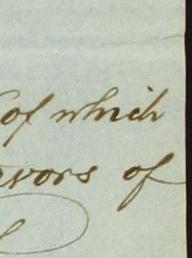 of which
avors of